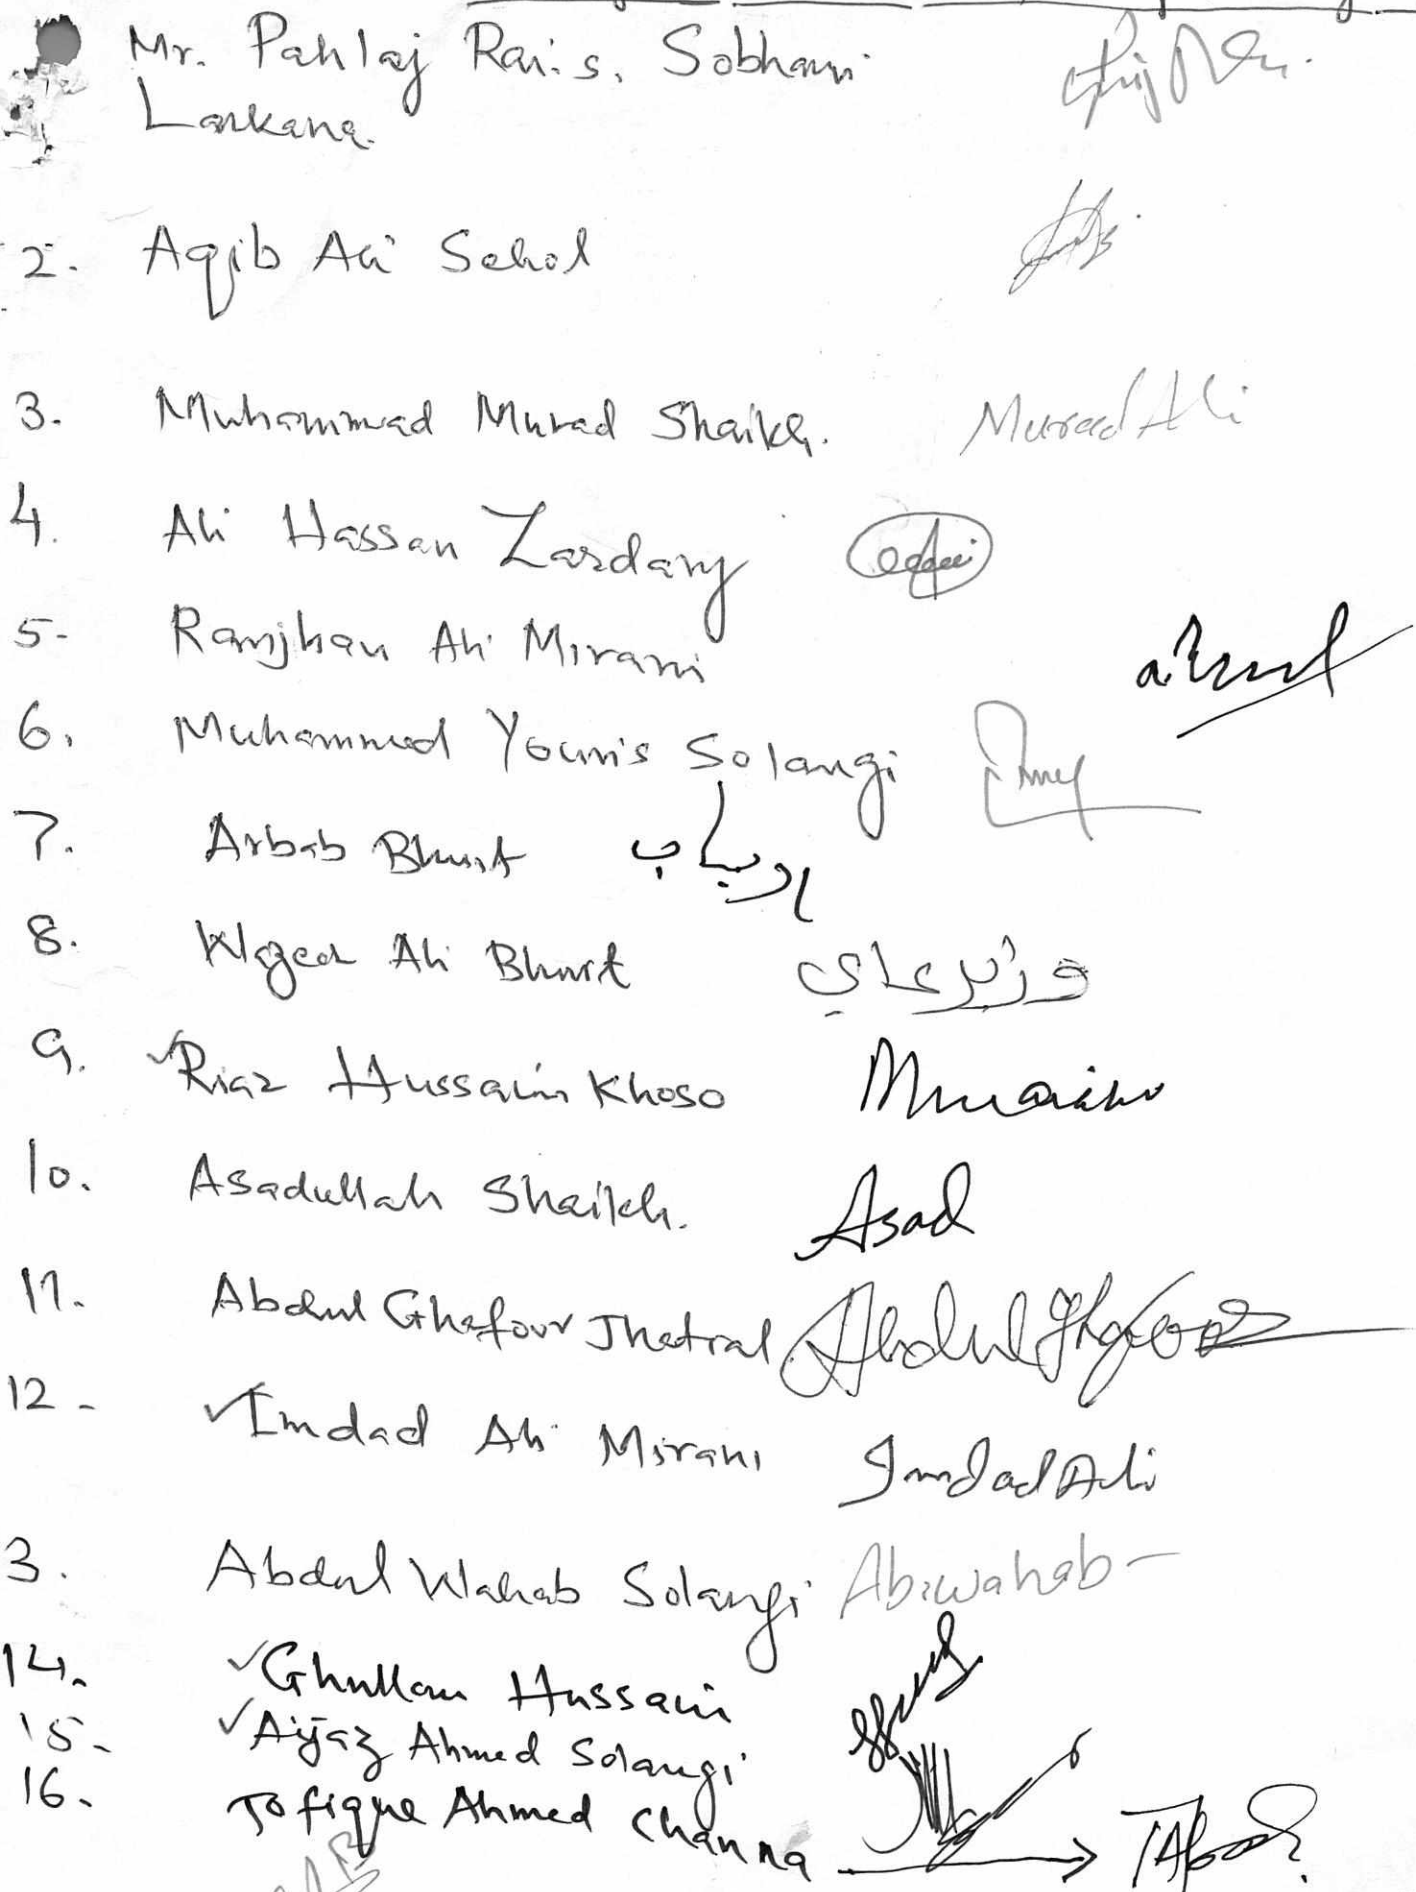 Mr. Pahlaj Rai. S. Sobhani
Larkana.
2. Aqib Ali Sehol
3. Muhammad Murad Shaikh. Murad Ali
4. Ali Hassan Zardary
5- Ranjhan Ali Mirani
6. Muhammad Younis Solangi
7. Arbab Bhurt ارباب
8. Wazeer Ali Bhurt وزير علي
9. ✓Riaz Hussain Khoso
10. Asadullah Shaikh. Asad
11. Abdul Ghafour Jhatial Abdul Ghafoor
12- ✓Imdad Ali Mirani Imdad Ali
3. Abdul Wahab Solangi Ab.wahab-
14. ✓Ghullam Hussain
15- ✓Aijaz Ahmed Solangi
16. Tofique Ahmed Channa